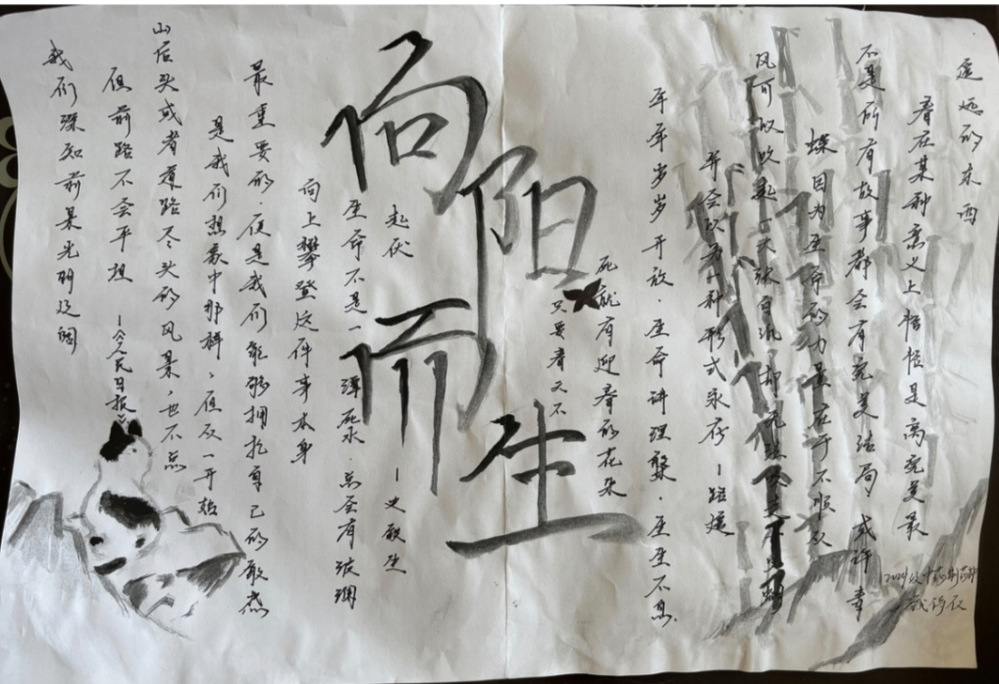 向阳而生
我们深知前景光明辽阔
但前路不会平坦 —《人民日报》
山后头或者道路尽头的风景，也不总
是我们想象中那样。但从一开始
最重要的，便是我们能够拥抱自己的敢
向上攀登这件事本身
生命不是一潭死水，总会有波澜
起伏 —史铁生
只要春天不
死就有迎春的花朵
年年岁岁开放，生命讲理，生生不息
并会以另一种形式永存 —路遥
风可以吹起一大张白纸，却无法吹走一只蝴
蝶因为生命的力量在于不顺从
不是所有故事都会有完美结局，或许幸
看在某种意义上恰恰是离完美最
遥远的东西